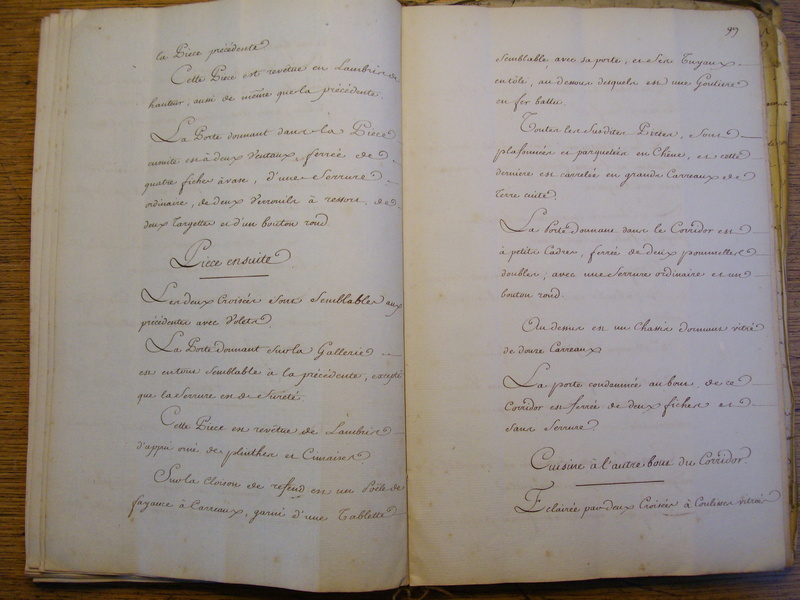 la Piece précédente
Cette Piece est revêtue en Lambris de
hauteur, aussi de même que la précédente.
La Porte donnant dans la Piece
ensuite est à deux Ventaux, ferrée de
quatre fiche à vase, d'une Serrure
ordinaire, de deux Verrouils à ressort, de
deux Targettes et d'un bouton rond
Piece ensuite
Les deux Croisées sont Semblables aux
précédentes avec Volets.
La Porte donnant sur la Gallerie
est en tout semblable à la précédente, excepté
que la Serrure est de Sûreté.
Cette Piece est revêtue de Lambris
d'appui orné de plinthes et Cimaises
Sur la Cloison de refend est un Poële de
fayance à Carreaux, garni d'une Tablette
97
semblable, avec sa porte, et Ses Tuyaux
en tôle, au dessous desquels est une Goutiere
en fer battu.
Toutes les Susdites Pièces, sont
plafonnées et parquetées en Chêne, et cette
derniere est carrelée en grands Carreaux de
Terre cuite.
La Porte donnant dans le Corridor est
à petits Cadres, ferrée de deux pommelles
doubles, avec une Serrure ordinaire et un
bouton rond.
Au dessus est un Chassis dormant vitré
de douze Carreaux
La porte condamnée au bout, de ce
Corridor est ferrée de deux fiches et
sans Serrure.
Cuisine à l'autre bout du Corridor.
Eclairée par deux Croisées à Coulisses vitrées